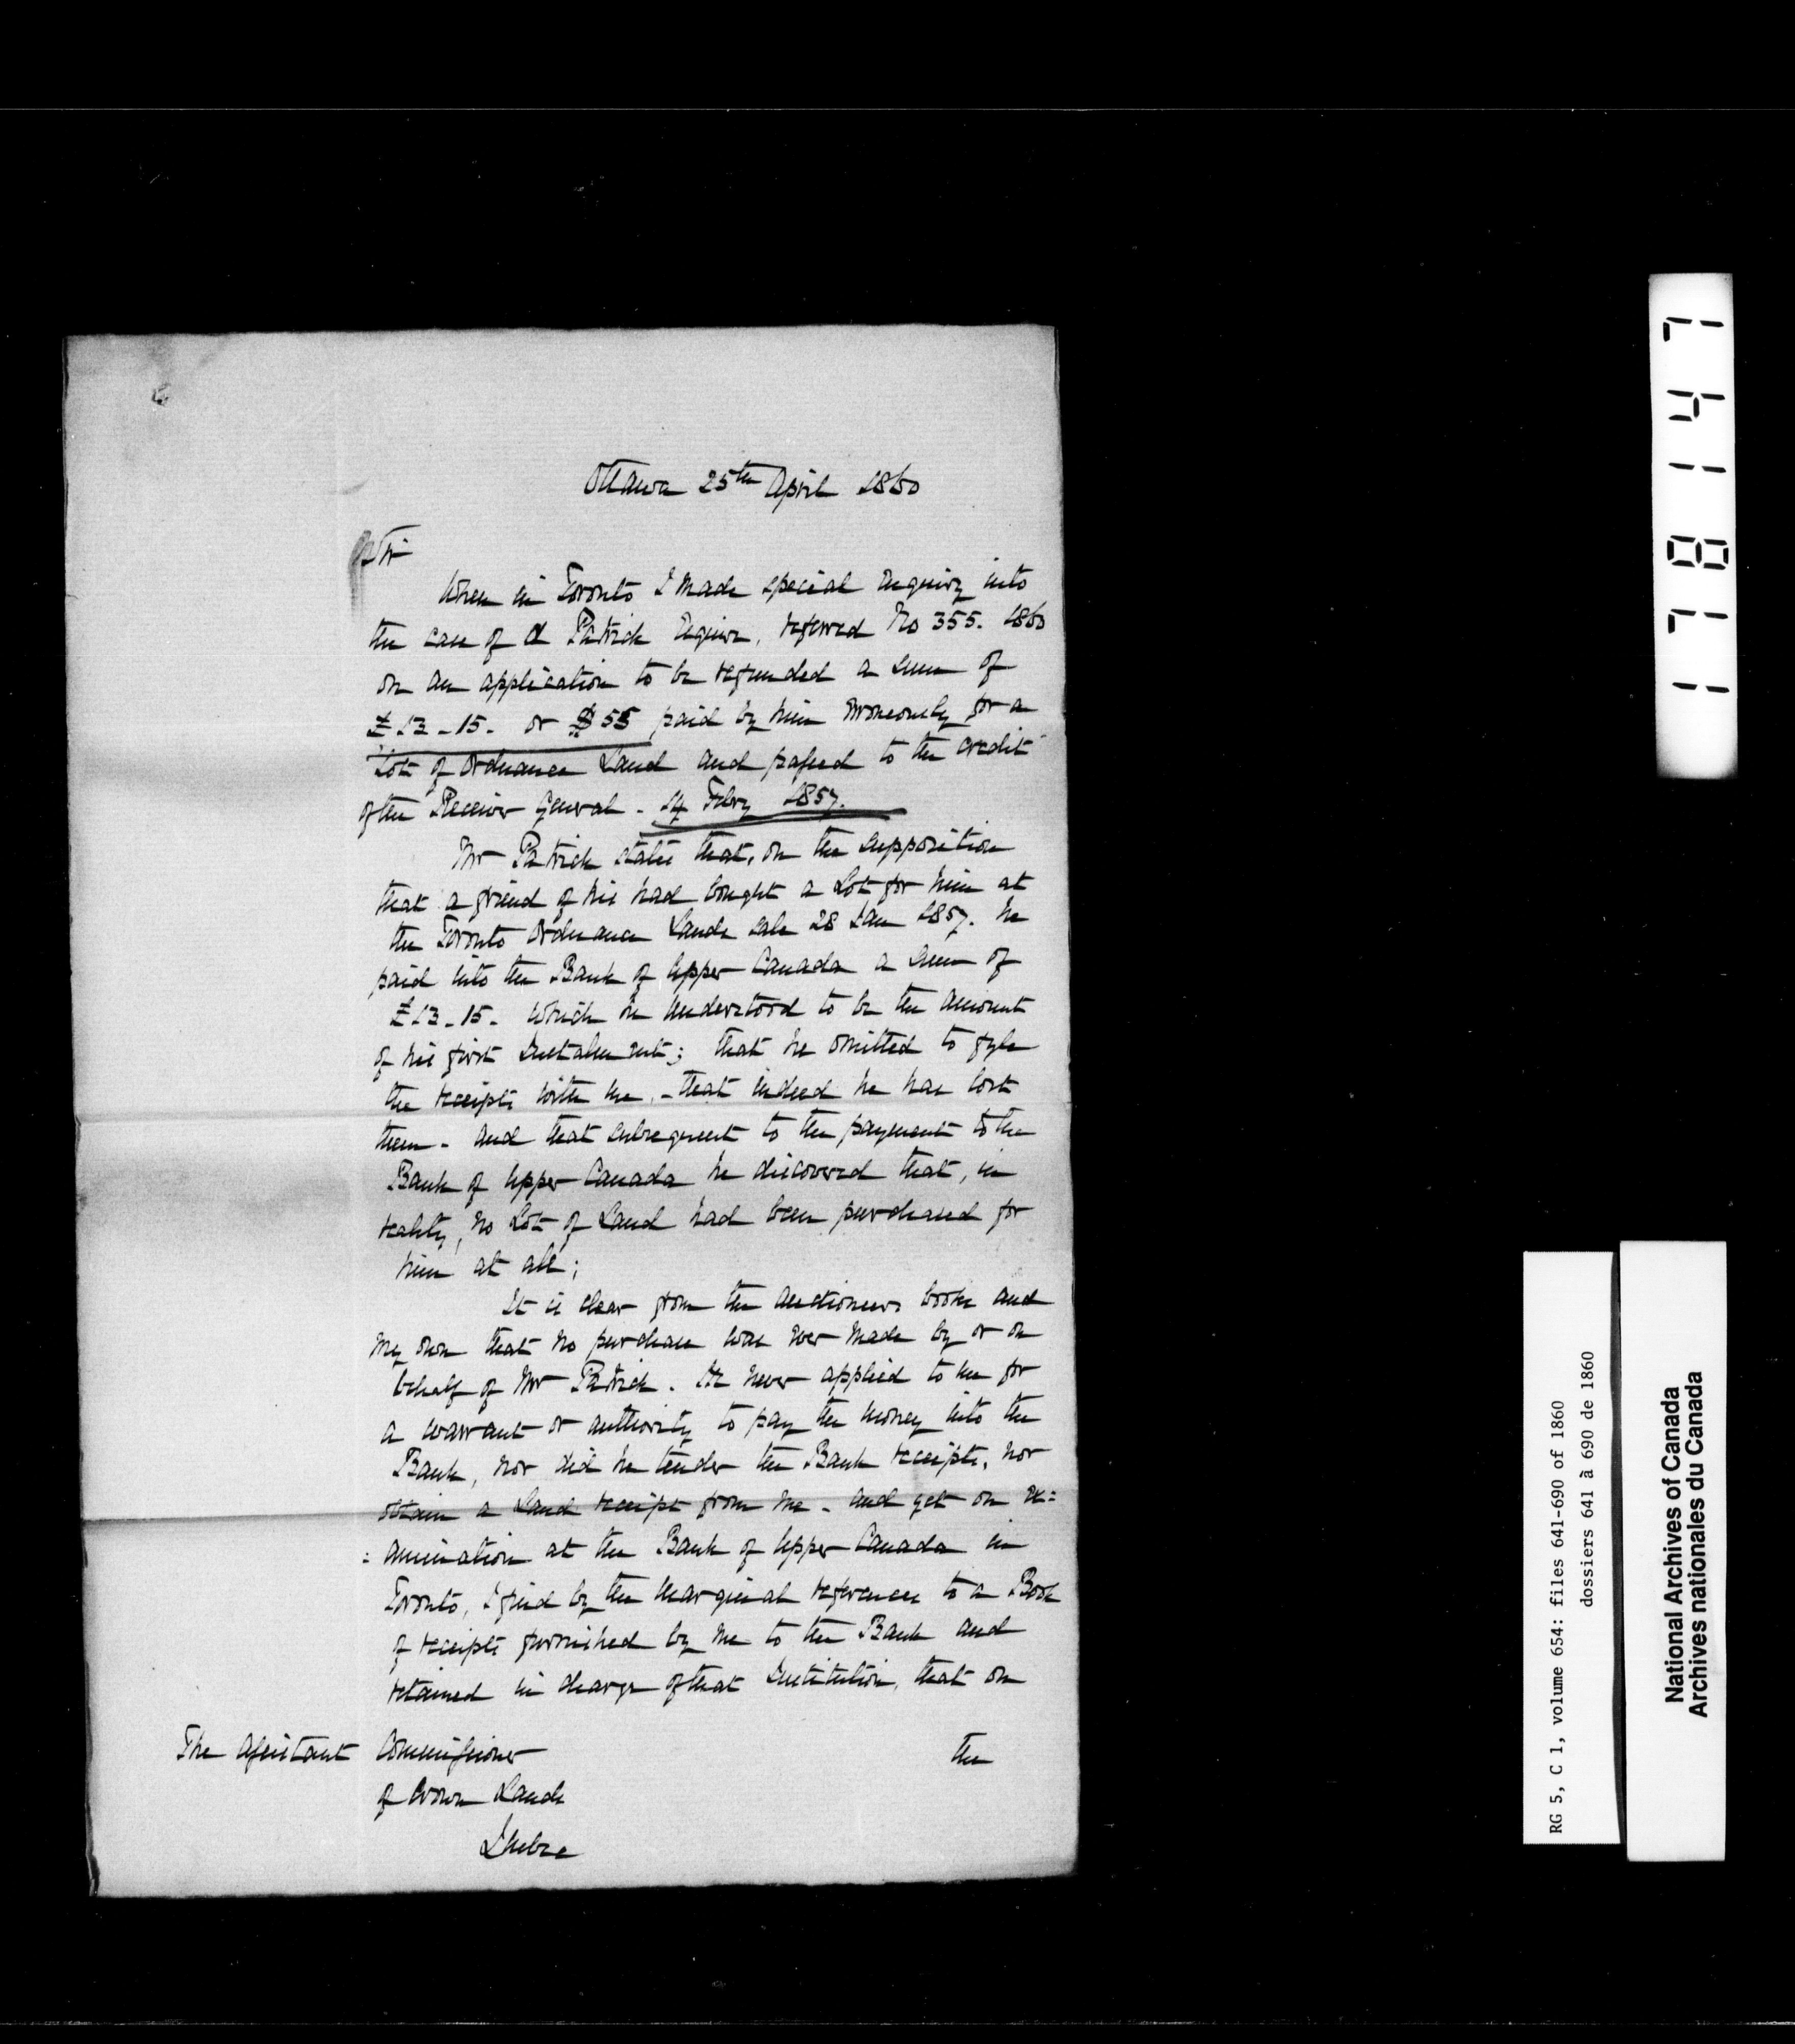 Ottawa 25th April 1860
Sir
When in Toronto I made special enquiry into
the case of A Patrick Esquire, referred No 355. 1860
on an application to be refunded a sum of
£13-15- or $55 paid by him erroneously for a
Lot of Ordnance Land and passed to the credit
of the Receiver General - 14 Febry 1857.
Mr Patrick states that, on the supposition
that a friend of his had bought a Lot for him at
the Toronto Ordnance Lands sale 28 Jan 1857. he
paid into the Bank of Upper Canada a sum of
£13-15- which he understood to be the amount
of his first Instalment; that he omitted to fyle
the receipts with me, - that indeed he has lost
them - and that subsequent to the payment to the
Bank of Upper Canada he discovered that, in
reality, no Lot of Land had been purchased for
him at all;
It is clear from the Auctioneers books and
my own that no purchase was ever made by or on
behalf of Mr Patrick. He never applied to me for
a warrant or authority to pay the money into the
Bank, nor did he tender the Bank receipts, nor
obtain a Land receipt from me - and yet on ex=
=amination at the Bank of Upper Canada in
Toronto, I find by the marginal references to a Book
of receipts furnished by me to the Bank and
retained in charge of that Institution, that on
the
The Assistant Commissioner
of Crown Lands
Quebec
1178147
RG 5, C 1, volume 654: files 641-690 of 1860
dossiers 641 à 690 de 1860
National Archives of Canada
Archives nationales du Canada